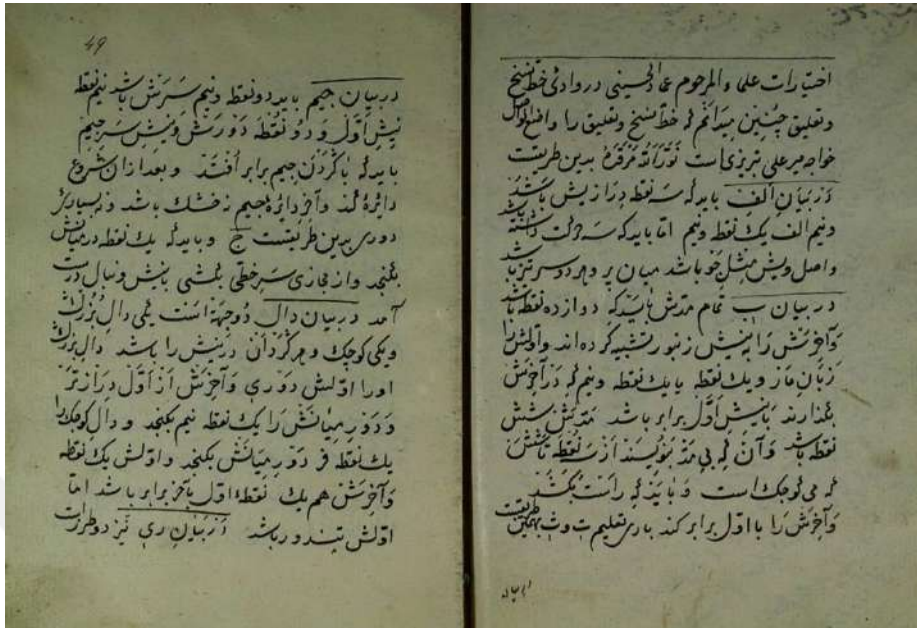 اختیارات علماء المرحوم عماد الحسینی در وادئ خط نسخ
وتعلیق چنین میدانم که خط نسخ وتعلیق را واضع الاصل
خواجه میر علی تبریزی است نَوَّرَ اللهُ مَرقَدَهُ بدین طریقست
دَرْبَیَانِ اَلِف باید که سه نقطه دِرازیش باشد
ونیم الف یك نقطه ونیم امّا باید که سه حرکت داشته باشد
واصل ویش مثل خو باشد میان پر وهر دو سر تیز باشد
در بیان ب تمام مدش باید که دوازده نقطه باشد
وَآخِرَشْ رَا به نیش زنبور تشبیه کرده‌اند واوّلش را
زَبَانِ مار ویك نقطه یا یك نقطه ونیم که دَر آخرش
بگذارند بانیشِ اوَّل برابر باشد مَدَّیشْ شش
نقطه باشد وَآن که بی مَدّ بنویسند اَزْ سه نقطه تا شش
که می کوچك است وَبایَد که راست بکشند
وَآخِرَشْ رَا با اوّل برابر کند باری تعلیم ت وث بهمین طریقست
49
در بیانِ جیم باید دو نقطه ونیم سَرَشْ باشد نیم نقطه
نیشِ اَوَّلْ وَدو نُقْطَه دَوْرَشْ ونیشِ سَرِ جیم
باید که با گَرْدَن جیم برابر اُفتد وبعد ازان شروع
دائره کند وآخر دائرهٔ جیم باشد وبسیار
دوری بدین طریقست ج وباید که یك نقطه در میانش
بگنجد واز سرِ خطی بکشی بانیش ونبال درست
آمد در بیان دال دُو جِهَة است یکی دال بزُرْك
ویکی کوچك وهر کَرْدَان دَرنیش را باشد دال بزرك
اورا اوّلش دَوْری وَآخِرَشْ اَز اَوَّلْ دِرازتَر
وَدَوْرِ مِیَانَشْ رَا یك نقطه نیم بکنجد ودال کوچك را
یك نقطه دَوْرِ مِیَانَشْ بکنجد واوّلش یك نقطه
وَآخِرَشْ هم یك نُقْطَه اوّل بآخر برابر باشد امّا
اوّلش تند ور باشد دَرْبَیَانِ رِی نیز دو طرزست